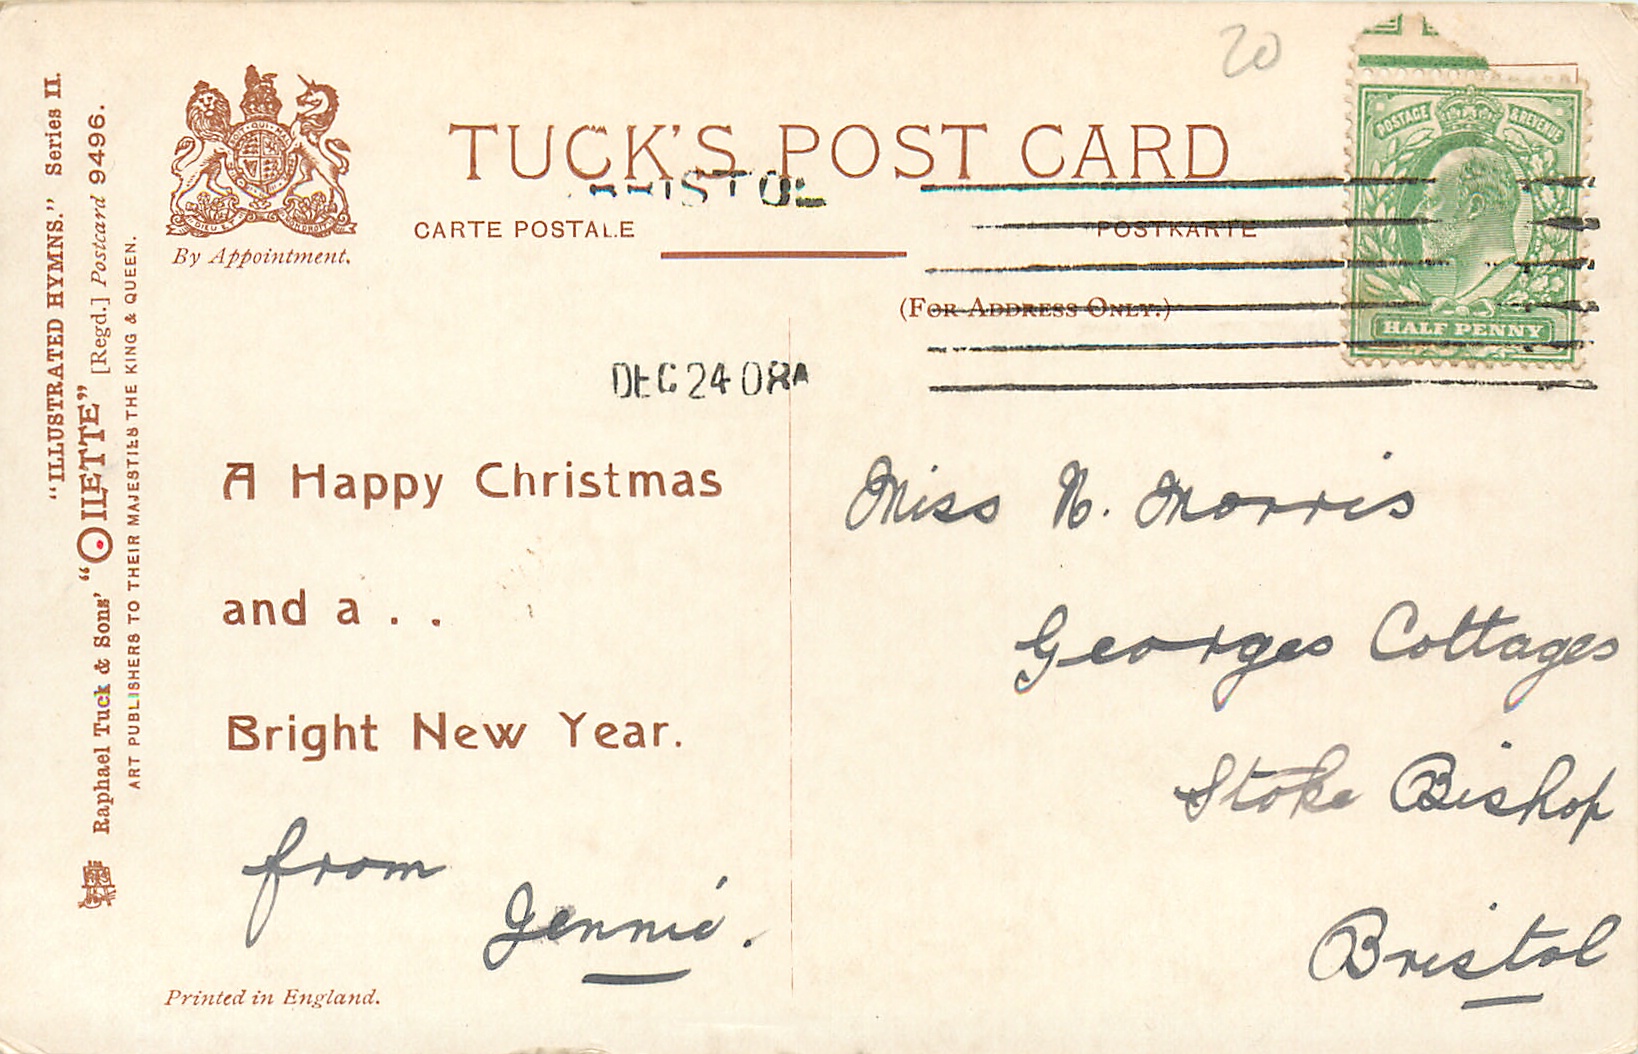 "ILLUSTRATED HYMNS." Series II.
Raphael Tuck & Sons' "OILETTE" [Regd.] Postcard 9496.
ART PUBLISHERS TO THEIR MAJESTIES THE KING & QUEEN.
By Appointment.
TUCK'S POST CARD
CARTE POSTALE
POSTKARTE
(FOR ADDRESS ONLY.)
20
POSTAGE & REVENUE
HALF PENNY
BRISTOL
DEC 24 08A
A Happy Christmas
and a . .
Bright New Year.
from
Jennie.
Printed in England.
Miss N. Morris
Georges Cottages
Stoke Bishop
Bristol